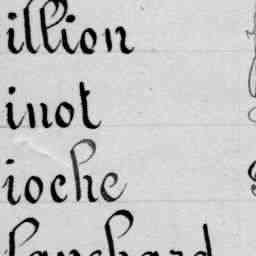 illion
inot
ioche
lanchard